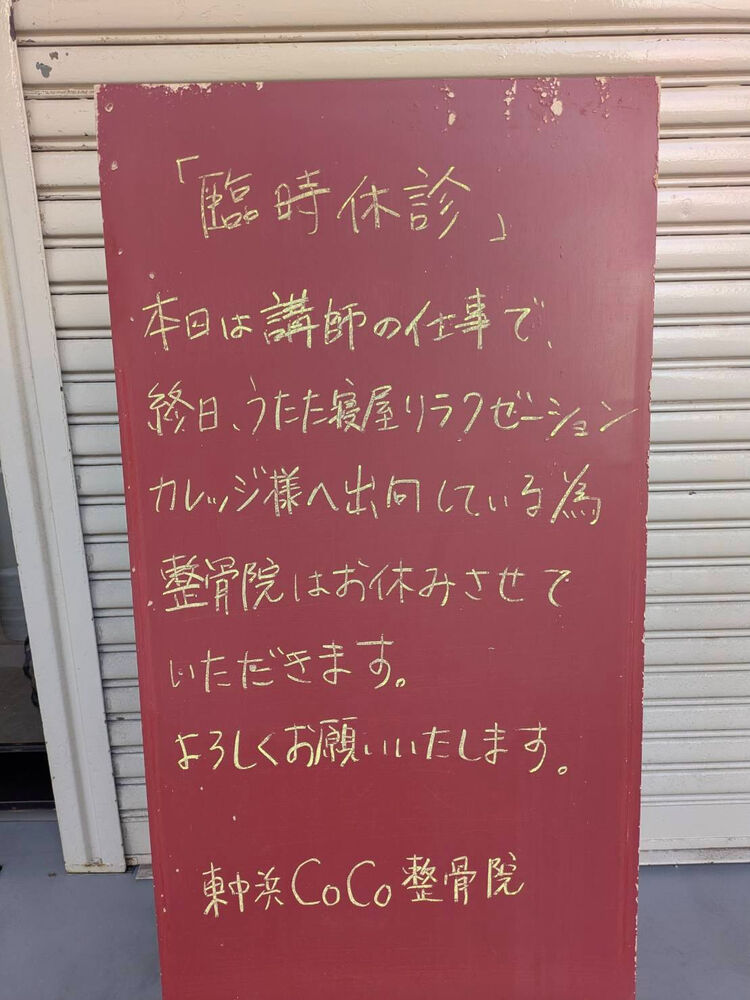 「臨時休診」
本日は講師の仕事で、
終日、うたた寝屋リラクゼーション
カレッジ様へ出向している為
整骨院はお休みさせて
いただきます。
よろしくお願いいたします。
東中浜CoCo整骨院